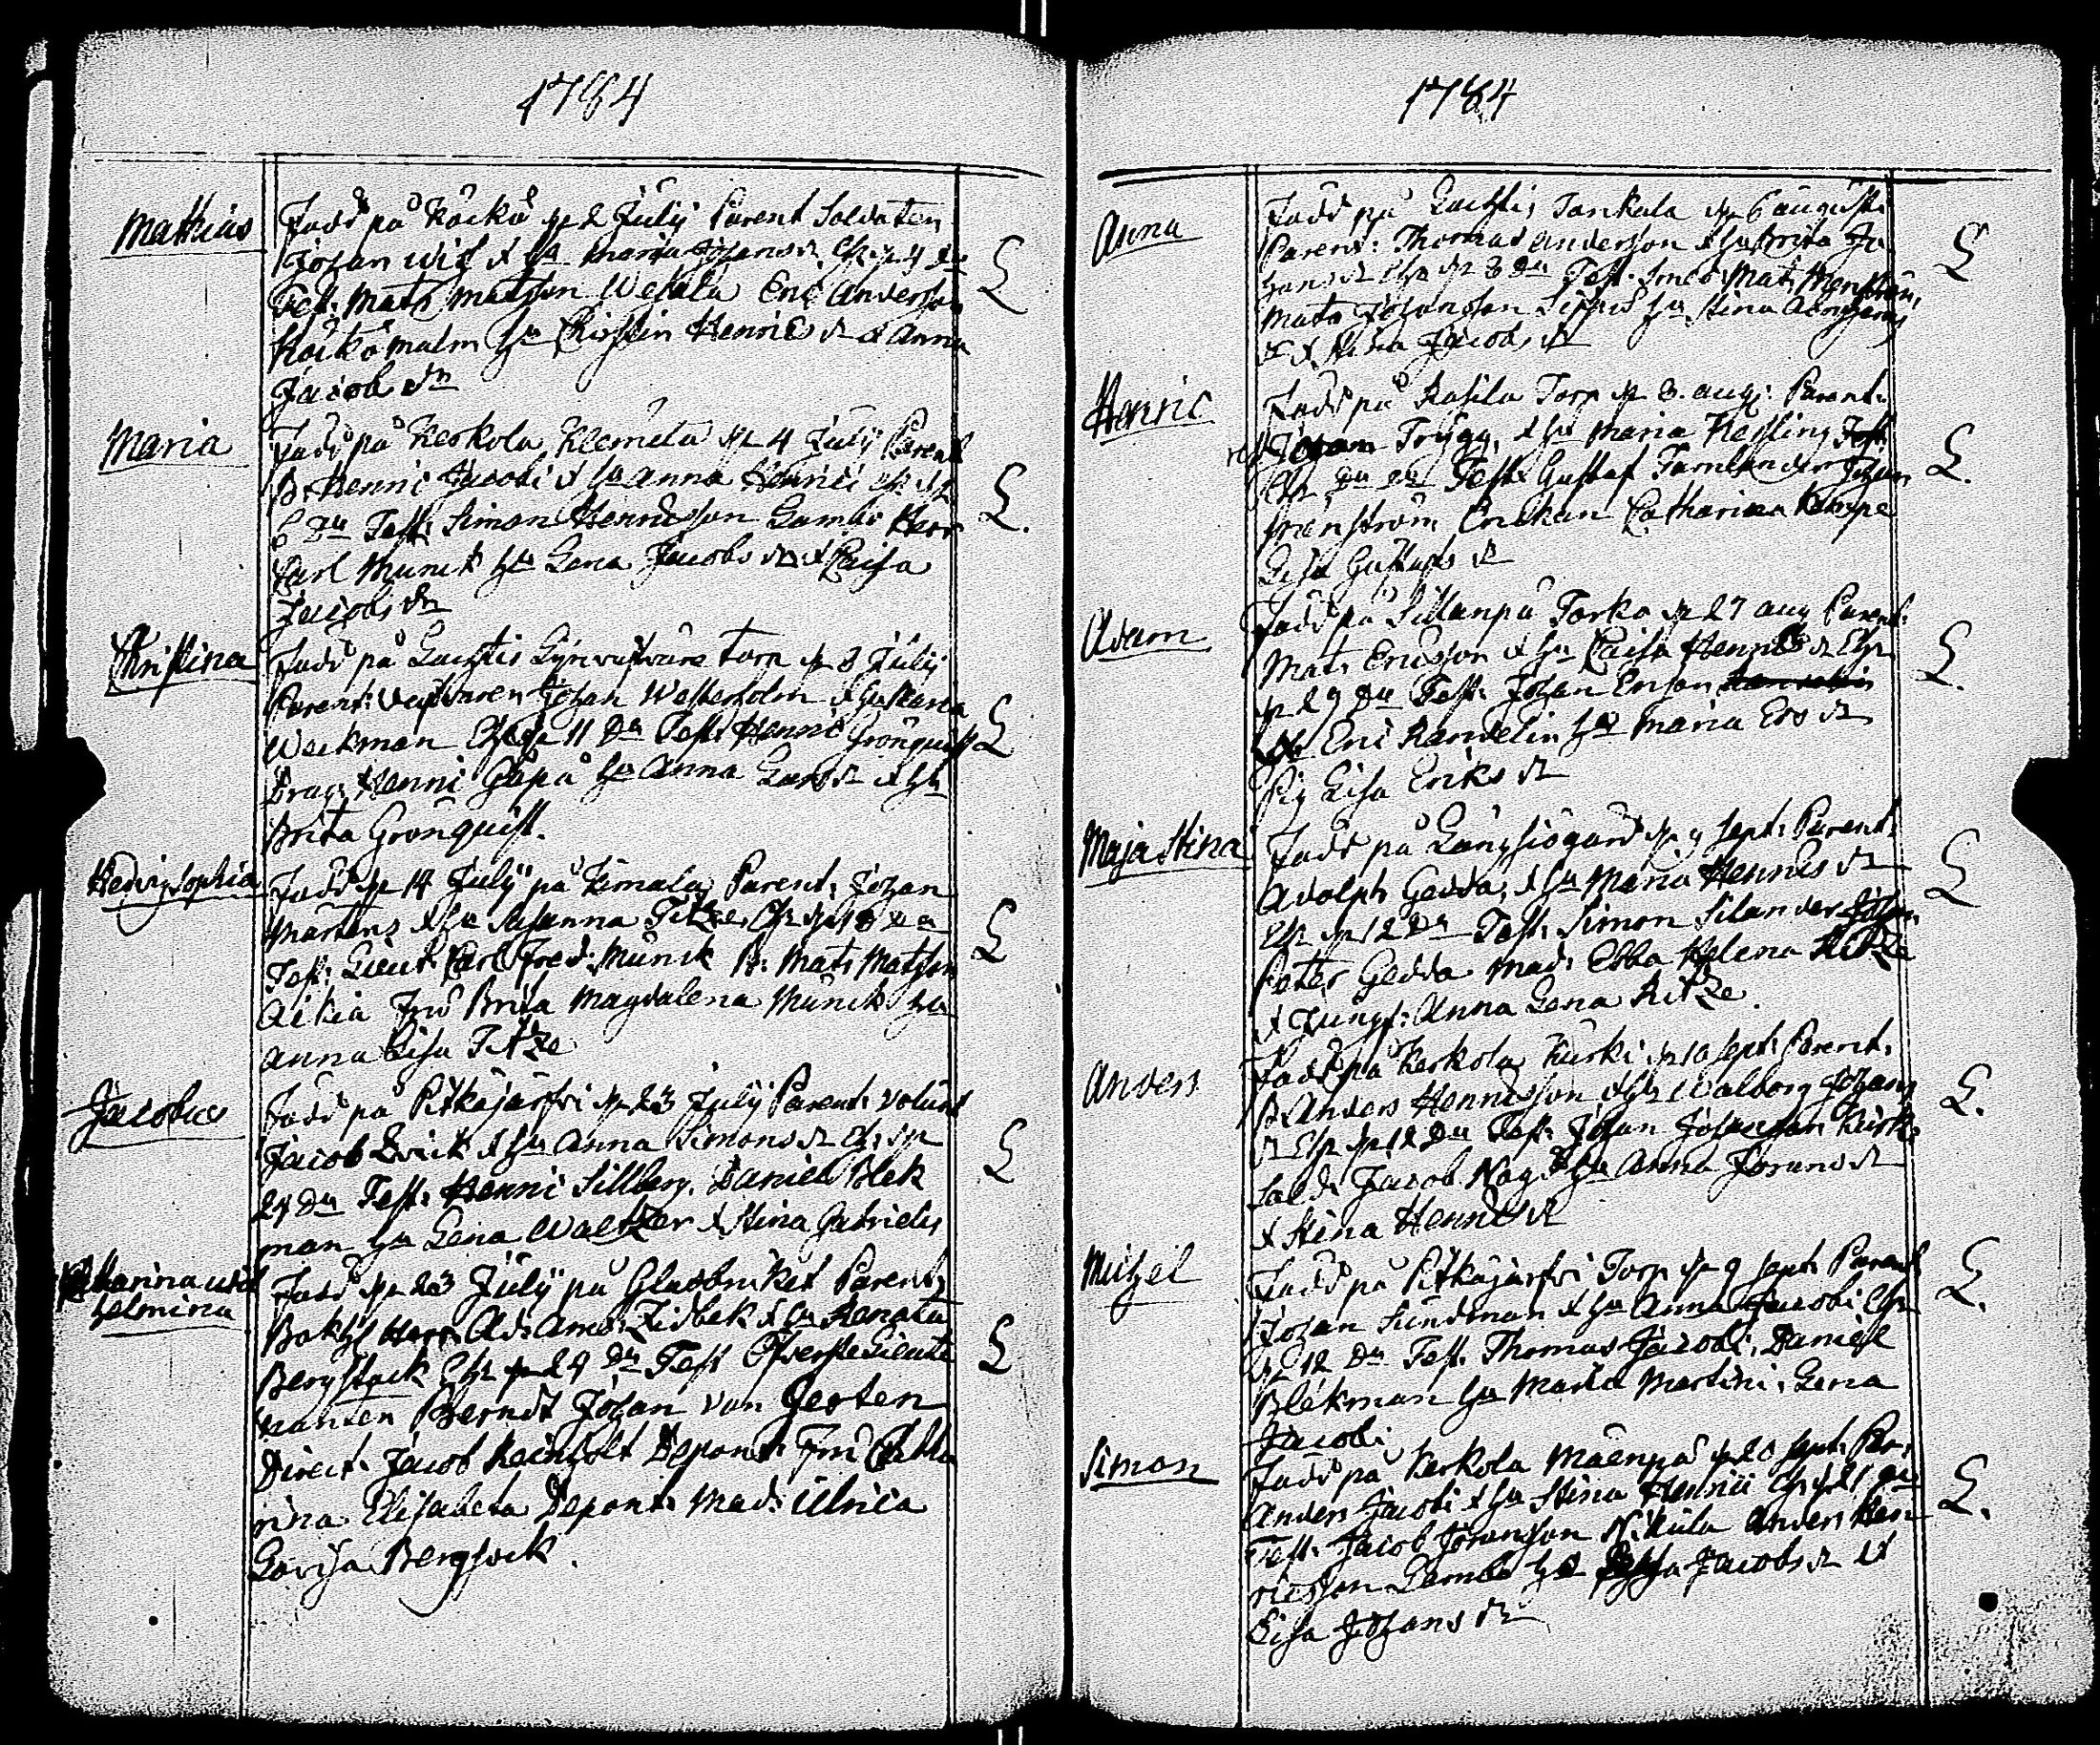 1784
Mathias
Född på Koiko d. 2 Julij Parent Soldaten
Johan Wis & h. Maria Johans dr Chr. d. 4 du
Test. Mats Matsson Wekala Eric Andersson
Koiko malm h. Christin Henrics dr & Anna
Jacobs dr
Maria
Född på Kerkola Klemeta d. 4 Julij Parent
B. Henric Jacobi & h. Anna Henrici Chr. d.
6 du Test. Simon Henricsson Lambo Herr
Carl Munck h. Lena Jacobs dr & Caisa
Jacobs dr
Christina
Född på Torp d. 8 Julij
Parent: Johan Westerholm & h. Maria
Weckman Chr. d. 11 du Test. Henric Grönquist
Drag. Henric Påpå h. Anna Lars dr & h.
Brita Grönquist.
Hedvig Sophia
Född d. 14 Julij på Kimala Parent. Johan
Martens & h. Susanna Titze Chr. d. 18 du
Test. Lieut. Carl Fred. Munck B. Mats Matsson
Aikia Fru Brita Magdalena Munck h.
Anna Lisa Titze
Jacobus
Född på Pitkäjärfvi d. 23 Julij Parent. Volunt
Jacob Dvick & h. Anna Simons dr Chr. d.
24 du Test. Henric Sillberg. Daniel Blek
man h. Lena Waltzer & Stina Gabriels
Catharina Wil
helmina
Född d. 23 Julij på Glasbruket Parent.
Bokh. Herr Ad. Amb. Zidbek & h. Renata
Bergstock Chr. d. 24 du Test Öfverste Lieute
nanten Berndt Johan von Gerten
Direct. Jacob Reinholt Depont. Fru Catha
rina Elisabeta Depont. Mad. Ulrica
Lovisa Bergstock.
1784
Anna
Född på Tankala d. 6 Augusti
Parent: Thomas Andersson & h. Brita Jo
hans dr Chr. d. 8 du Test. Mats
Mats Johansson h. Stina
& Stina Jacobs dr
Henric
Född på Rasila Torp d. 8. aug. Parent.
Johan Trygg, & h. Maria Kesling
Chr. du Test. Gustaf Tamlander Johan
Catharina Kempe
Lisa Gustafs dr
Adam
Född på Sillanpä Torka d. 27 aug Parent.
Mats Ericsson & h. Caisa Henrics dr Chr.
d. 29 du Test. Johan Erson
Eric Randelin h. Maria Ers dr
Pig Lisa Eriks dr
Maja Stina
Född på Långsiögård d. 9 Sept. Parent.
Adolph Gedda, & h. Maria Henrics dr
Chr. d. 12 du Test. Simon Silander
Peter Gedda Mad. Ebba Helena Ritze
& Jungf. Anna Lena Ritze.
Anders
Född på Kerkola Kurki d. 10 Sept. Parent.
B. Anders Henricsson & h. Walborg Johans
dr Chr. d. 12 du Test. Johan Johansson Kurki
Sold. Jacob Nag. & h. Anna Jörans dr
& Stina Henrics dr
Michel
Född på Pitkäjärfvi Torp d. 9 Sept. Parent
Johan Sundman & h. Anna Jacobi Chr.
d. 12 du Test. Thomas Jacobi, Daniel
Blekman h. Maria Martini, Lena
Jacobi.
Simon
Född på Kerkola Mäenpä d. 20 Sept. Par.
Anders Jacobi & h. Stina Henrici Chr. d. 21 du
Test. Jacob Jöransson Nikula Anders Hen
ricsson Lambo h. Jacobs dr &
Lisa Johans dr